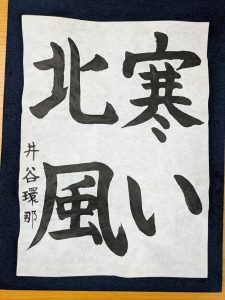 寒い
北風
井谷環那